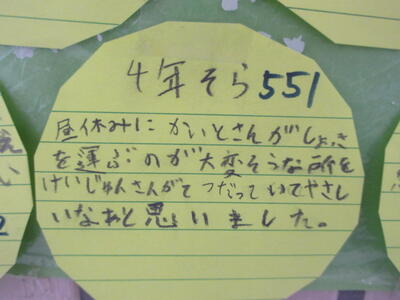 4年そら551
昼休みにかいとさんがしょっき
を運ぶのが大変そうな所を
けいじゅんさんがてつだっていてやさし
いなあと思いました。